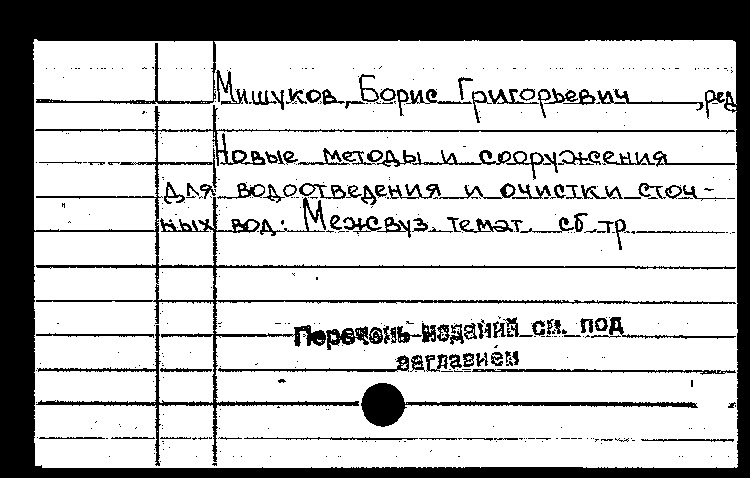 Мишуков, Борис Григорьевич ,ред
Новые методы и сооружения
для водоотведения и очистки сточ-
ных вод: Межвуз. темат. сб. тр.
Перечень изданий см. под
заглавием